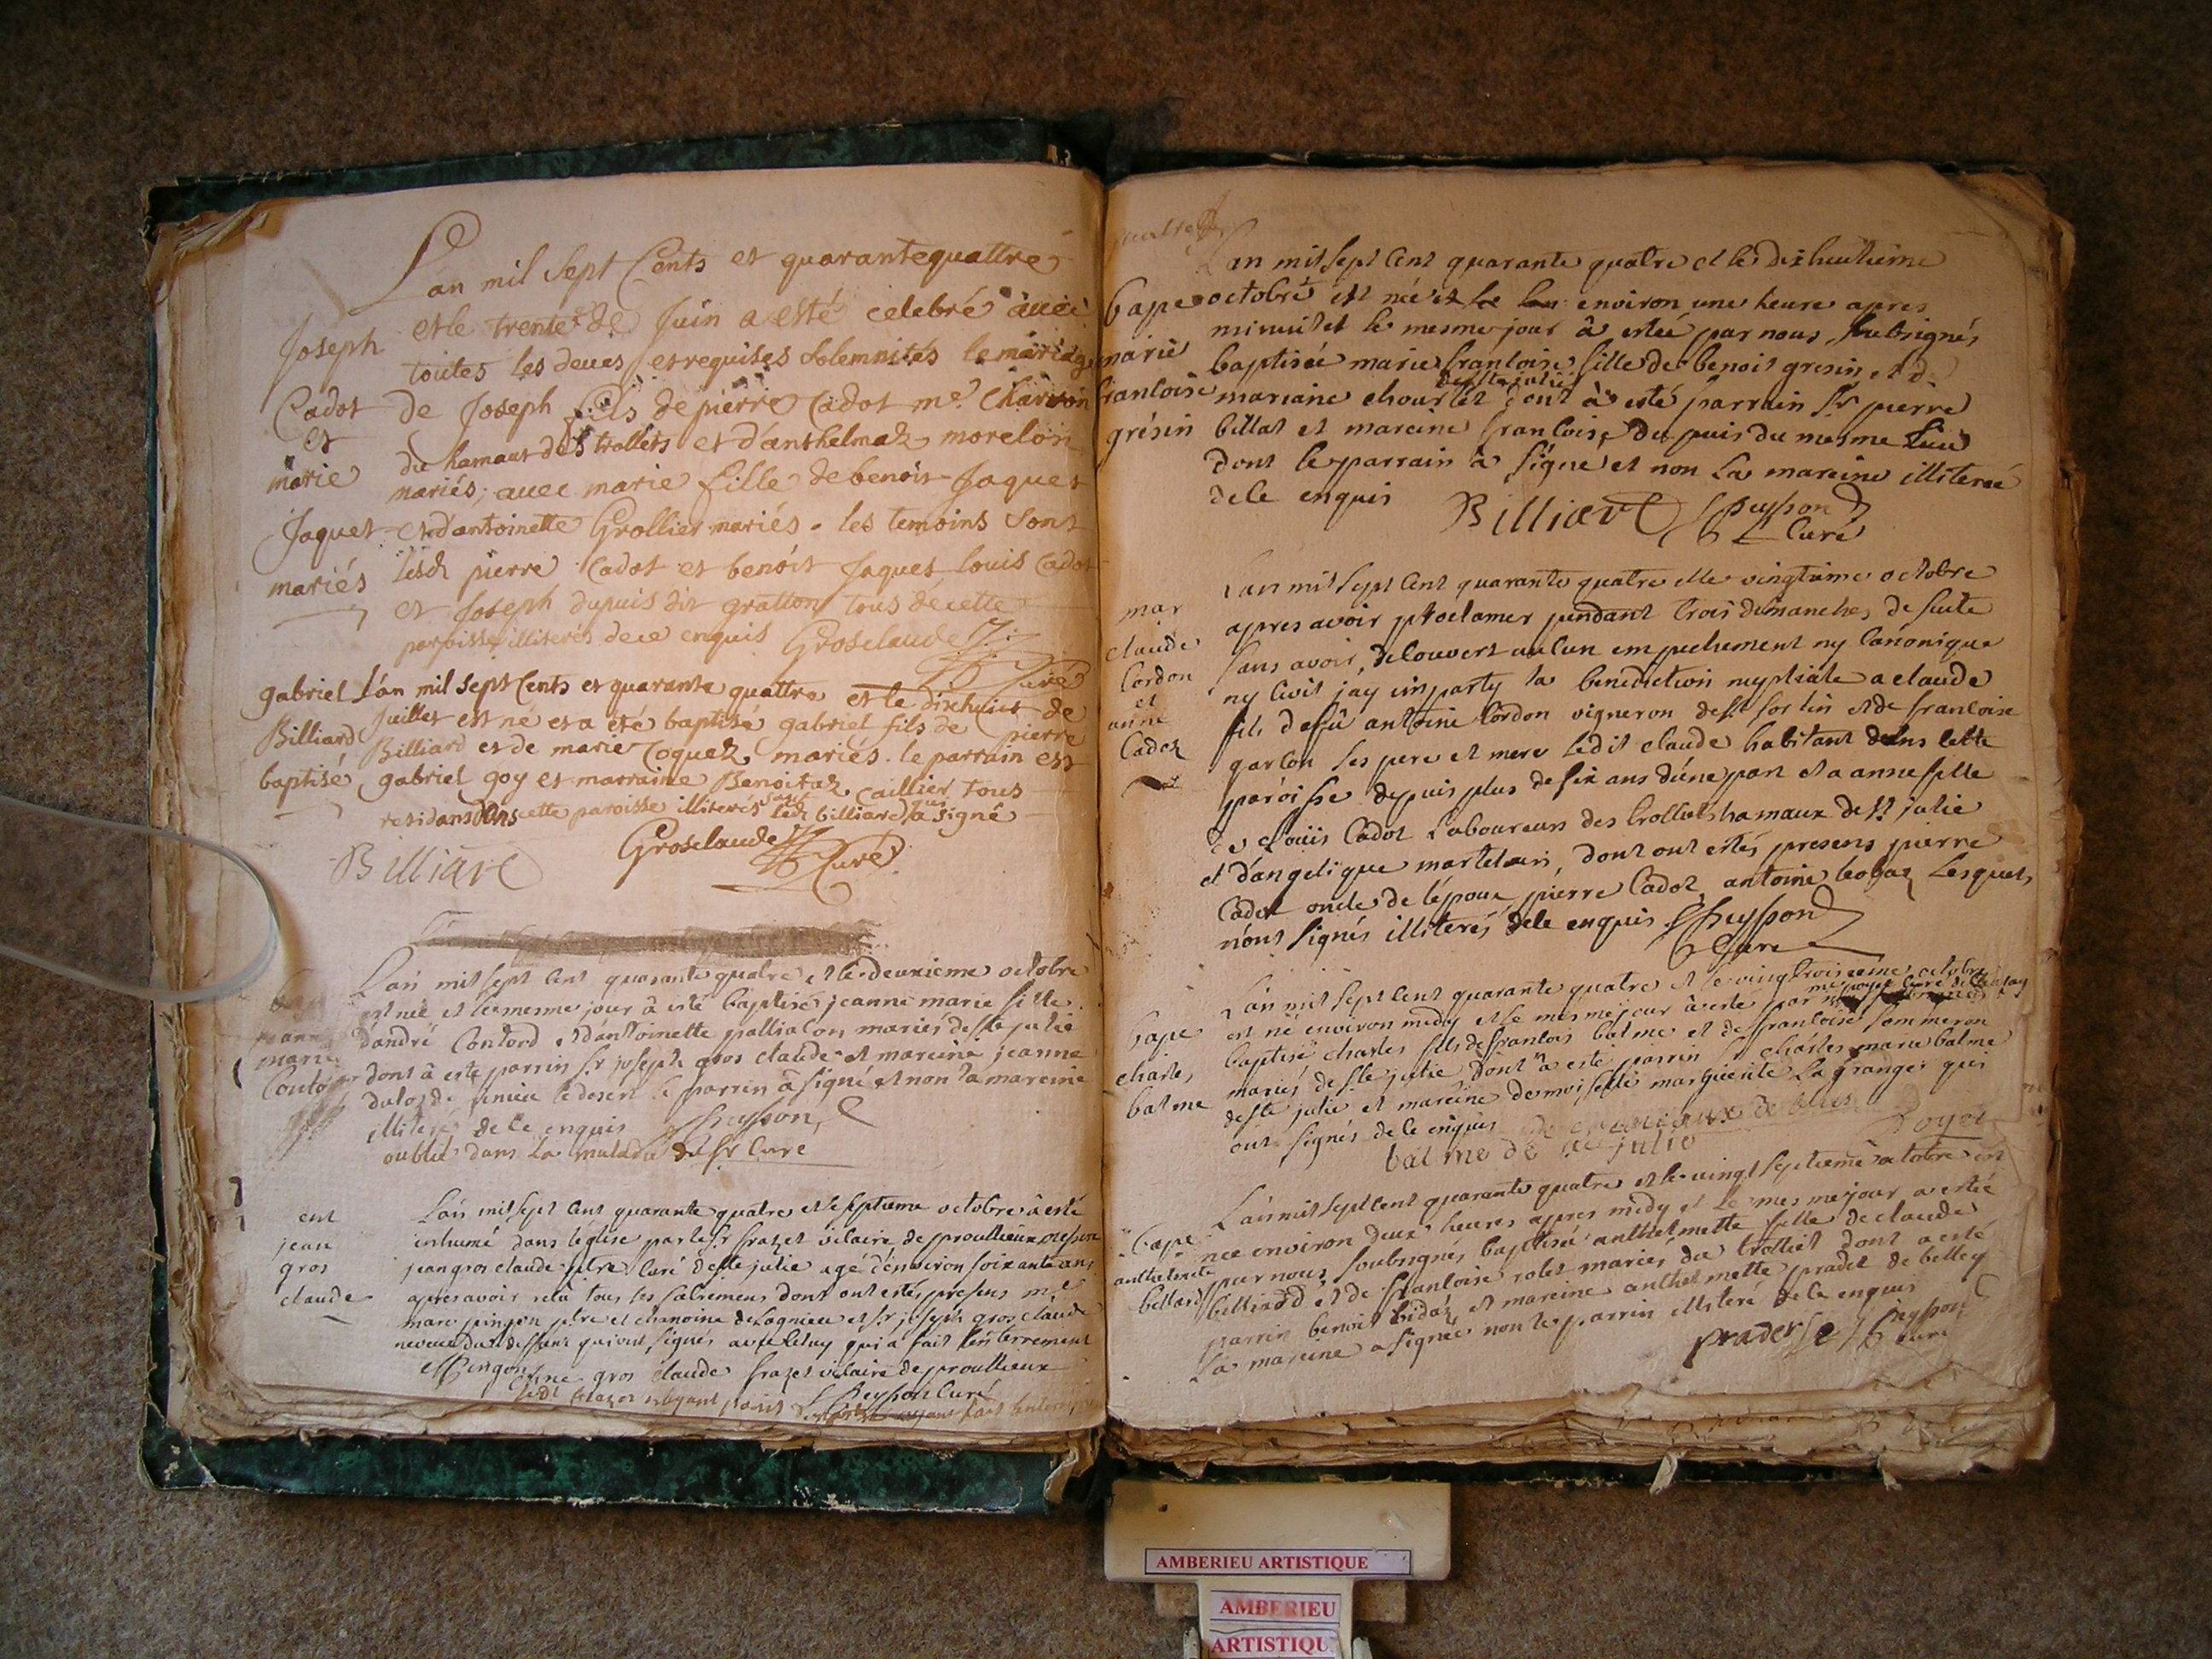 L'an mil sept Cents et quarantequattre
et le trente de Juin a esté celebré avec
toutes les deues et requises solemnités le mariage
de Joseph fils de pierre Cadot me. Charron
du hamaux des trollets et d'anthelmaz morelon
mariés, avec marie fille de benoit Jaques
et d'antoinette Grollier mariés. les temoins sont
lesd pierre Cadot et benoit Jaques, louis Cadot
et Joseph dupuis dit gratton tous de cette
paroisse illiterés de ce enquis Grosclaude
Curé
Joseph
Cadot
et
marie
Jaquet
mariés
gabriel
Billiard
baptisé
L'an mil sept Cents et quarante quattre et le dixhuict de
Juillet est né et a été baptisé gabriel fils de pierre
Billiard et de marie Coquet mariés. le parrain est
gabriel goy et marraine Benoitaz caillier tous
residans dans cette paroisse illiterés led billiard a signé
Billiard Grosclaude Curé
L'an mil sept cent quarante quatre et le deuxieme octobre
est née et le mesme jour à esté baptisé jeanne marie fille
d'andré Contord et d'antoinette palliacon mariés de ste julie
dont à esté parrin sr joseph gros claude et mareine jeanne
le parrin à signé et non la mareine
illiteré de ce enquis
oublié dans la maladie du sr Curé
marie
ent
jean
gros
claude
L'an mil sept cent quarante quatre et le septieme octobre à esté
inhumé dans l'église par le sr frazet vicaire de proullieux messire
jean gros claude ptre Curé de ste julie agé d'environ soixante ans
apres avoir reçû tous les sacremens dont ont estés presens mre
marc pinjon ptre et chanoine de Lagnieu et sr joseph gros claude
neveu dud deffunt qui ont signés avec celuy qui a fait l'enterrement
gros claude frazet vicaire de proullieux
Curé
L'an mil sept cent quarante quatre et le dixhuitieme
octobre est née environ une heure apres
minuit et le mesme jour à estée par nous soubsignés
baptisée marie francoise fille de benoit gresin et de
mariane chourlet de ste julie dont à esté parrain sr pierre
billat et mareine francoise du puis du mesme lieu
dont le parrain à signé et non la mareine illiterée
de ce enquis Billiard
Curé
bape
marie
francoise
grésin
mar
claude
Cordon
et
anne
Cadot
L'an mil sept cent quarante quatre et le vingtieme octobre
apres avoir proclamer pendant trois dimanches de suite
sans avoir decouvert aucun empechement ny canonique
ny civil j'ay imparty la benediction nuptiale a claude
fils de fû antoine Cordon vigneron de st sorlin et de francoise
garcon ses pere et mere ledit claude habitant dans cette
paroisse depuis plus de six ans d'une part et a anne fille
de Loüis Cadot Laboureur des trollets hamaux de st julie
et d'angelique martelain, dont ont estés presens pierre
Cadot oncle de l'epoux pierre Cadot antoine Lesquels
n'ont signés illiterés de ce enquis
Curé
bape
charles
balme
L'an mil sept cent quarante quatre et le vingt troisieme octobre
est né environ midy et le mesme jour à esté par
baptisé charles fils de francois balme et de francoise sommeron
mariés de ste julie dont à esté parren sr charles marie balme
de ste julie et mareine demoiselle marguerite La granger qui
ont signés de ce enquis
balme de ste julie
bape
anthelmette
belliard
L'an mil sept cent quarante quatre et le vingt septieme octobre est
née environ deux heures apres midy et le mesme jour a estée
par nous soubsignés baptisée anthelmette fille de claude
belliard et de francoise rolet mariés du trolliet dont a esté
parrin benoit bidaz et mareine anthelmette pradet de belley
La mareine a signée non le parrin illiteré de ce enquis
Curé
AMBERIEU ARTISTIQUE
AMBERIEU
ARTISTIQU